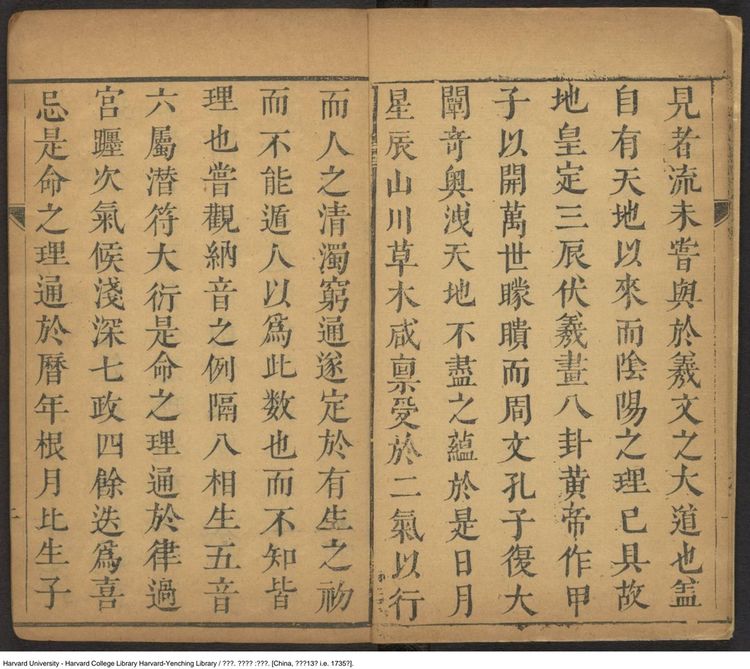 見者流未嘗與於羲文之大道也葢
自有天地以來而陰陽之理已具故
地皇定三辰伏羲畫八卦黃帝作甲
子以開萬世矇瞶而周文孔子復大
闡奇奥洩天地不盡之蘊於是日月
星辰山川草木咸禀受於二氣以行
而人之清濁窮通遂定於有生之初
而不能遁人以爲此数也而不知皆
理也嘗觀納音之例隔八相生五音
六屬潜符大衍是命之理通於律過
宫躔次氣候淺深七政四餘迭爲喜
忌是命之理通於曆年根月比生子
Harvard University - Harvard College Library Harvard-Yenching Library / ???. ???? :???. [China, ???13? i.e. 1735?].